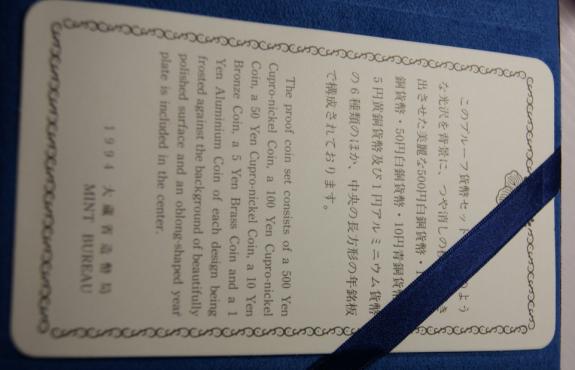 このプルーフ貨幣セット よう
な光沢を背景に、つや消しの き
出させた美麗な500円白銅貨幣・
銅貨幣・50円白銅貨幣・10円青銅貨幣
5円黄銅貨幣及び1円アルミニウム貨幣
の6種類のほか、中央の長方形の年銘板
で構成されております。
The proof coin set consists of a 500 Yen
Cupro-nickel Coin, a 100 Yen Cupro-nickel
Coin, a 50 Yen Cupro-nickel Coin, a 10 Yen
Bronze Coin, a 5 Yen Brass Coin and a 1
Yen Aluminium Coin of each design being
frosted against the background of beautifully
polished surface and an oblong-shaped year
plate is included in the center.
1994 大蔵省造幣局
MINT BUREAU